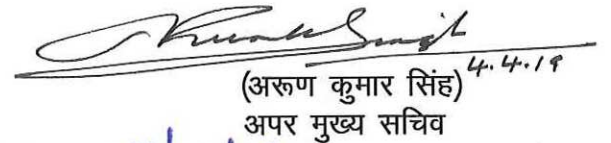 4.4.19
(अरूण कुमार सिंह)
अपर मुख्य सचिव